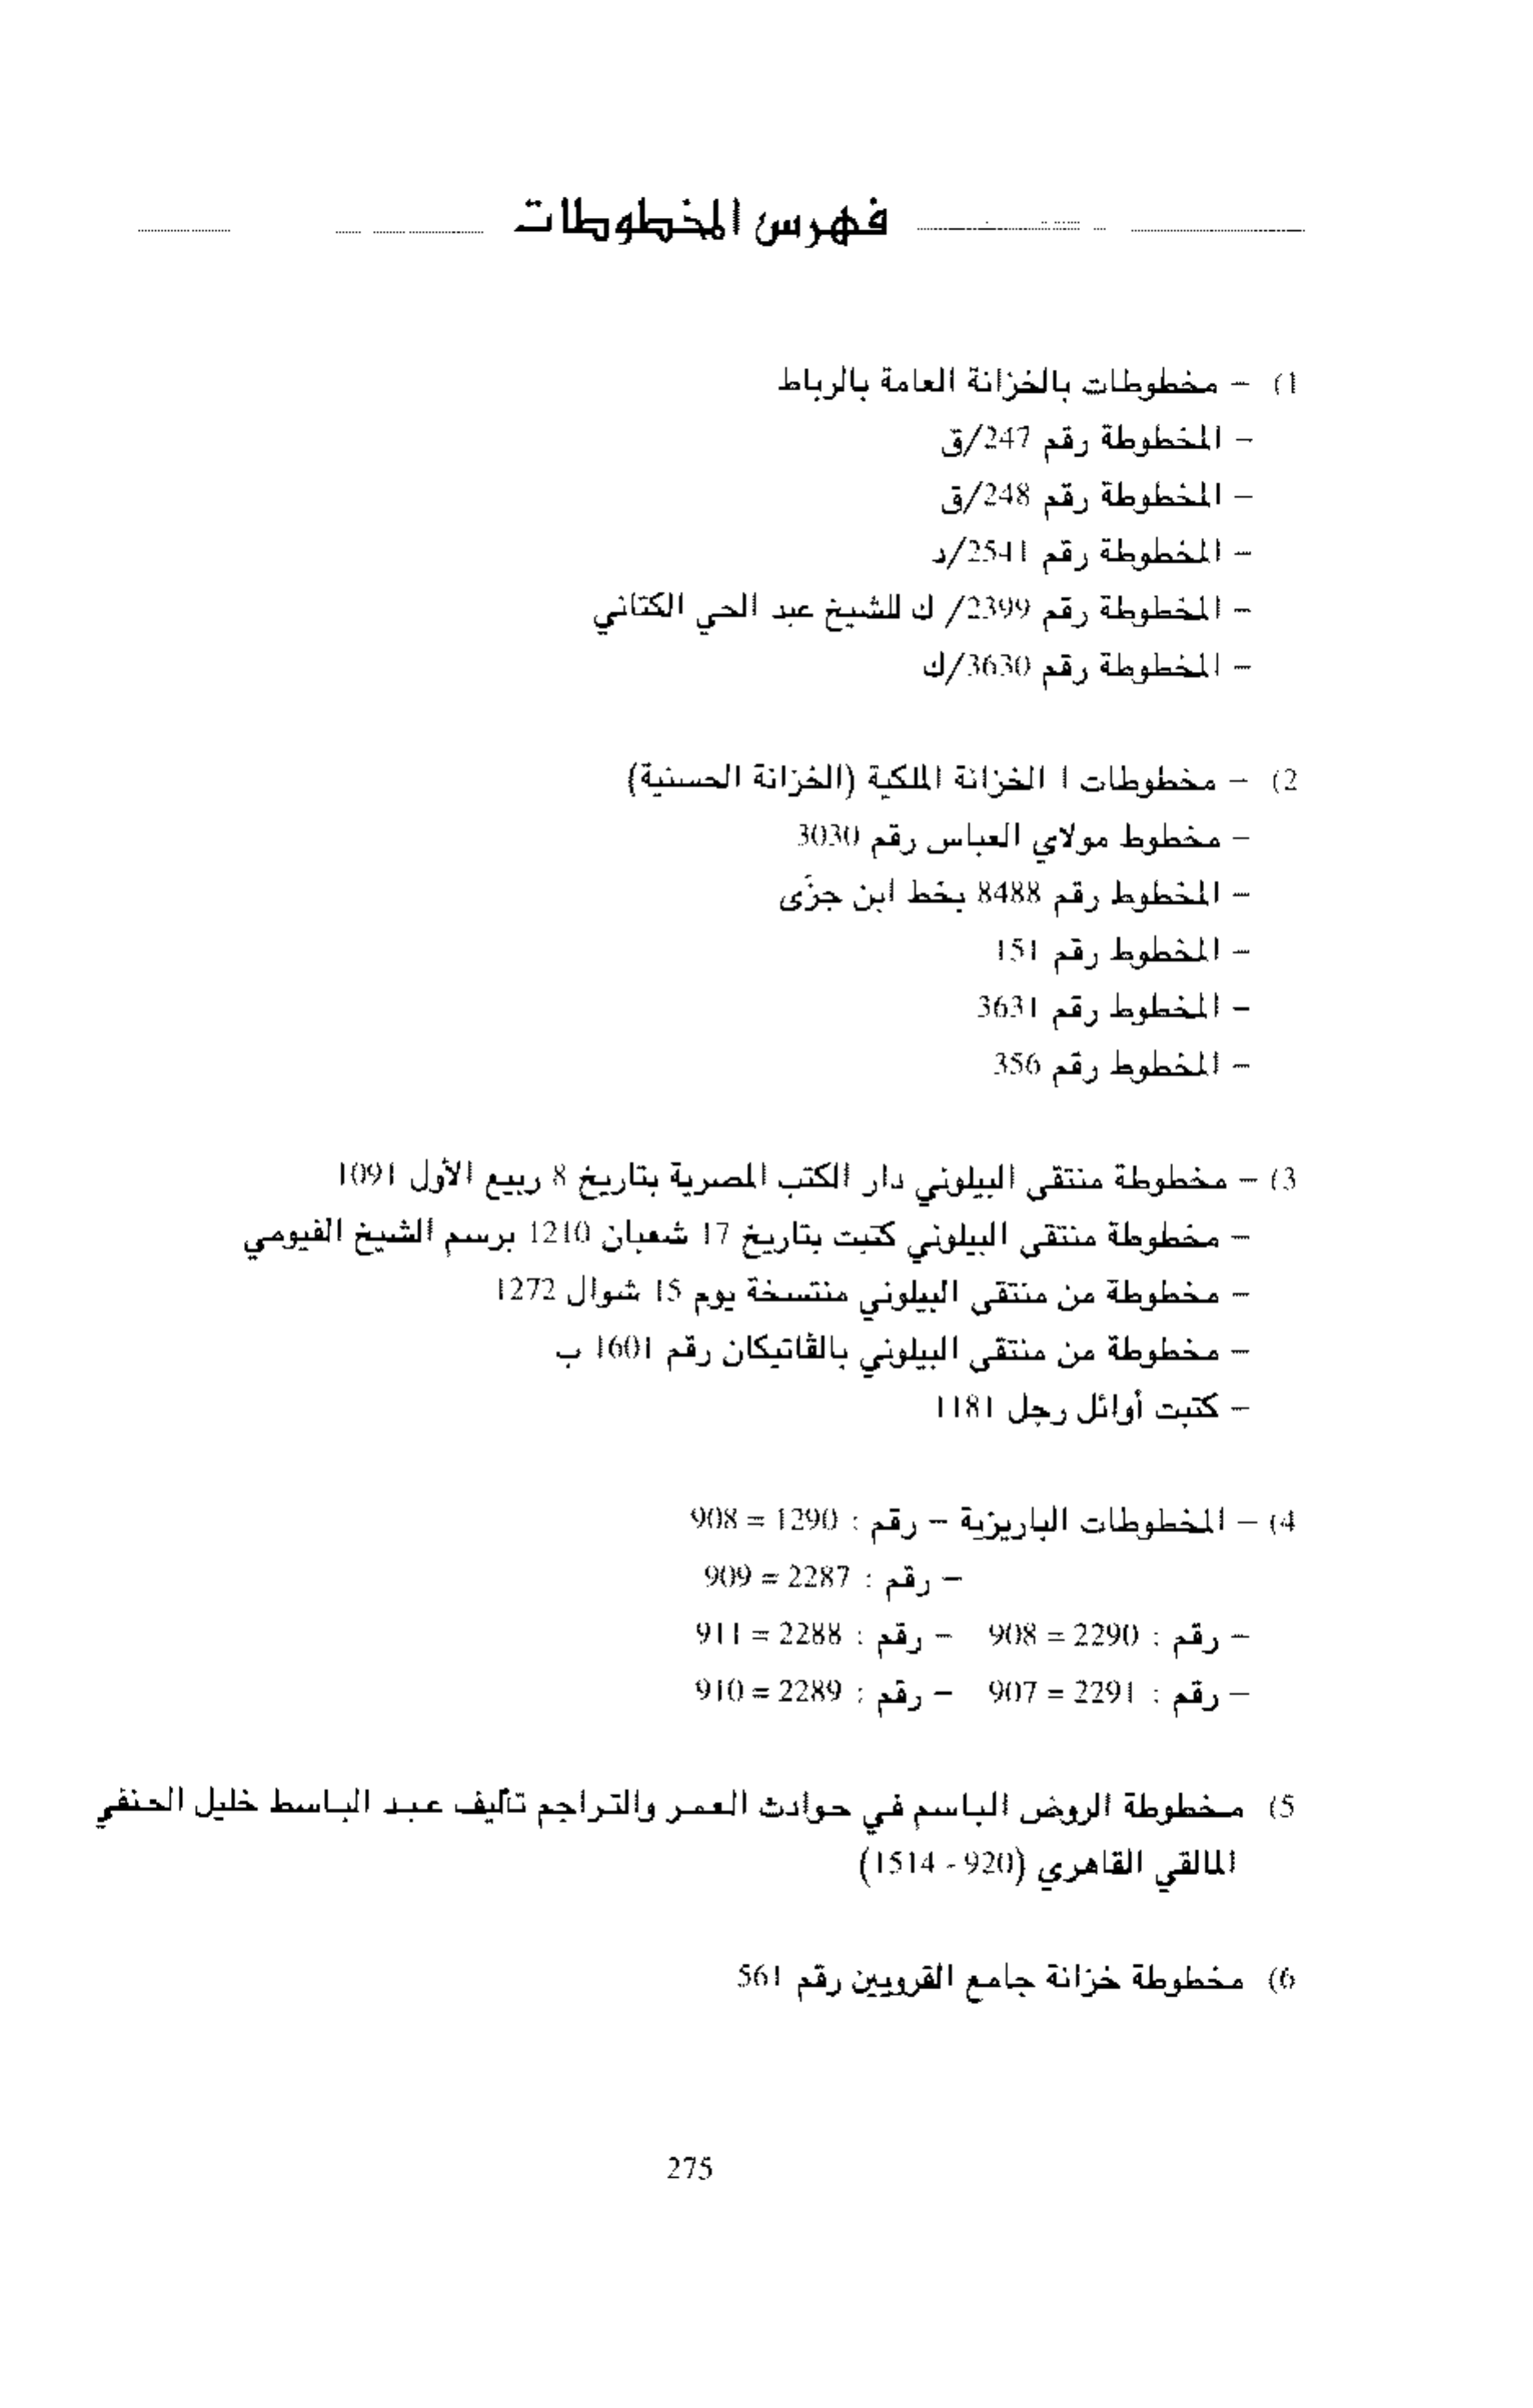 فهرس المخطوطات
1) – مخطوطات بالخزانة العامة بالرباط
– المخطوطة رقم 247/ق
– المخطوطة رقم 248/ق
– المخطوطة رقم 2541/د
– المخطوطة رقم 2399/ ك للشيخ عبد الحي الكتاني
– المخطوطة رقم 3630/ك
2) – مخطوطات ا الخزانة الملكية (الخزانة الحسنية)
– مخطوط مولاي العباس رقم 3030
– المخطوط رقم 8488 بخط ابن جزَى
– المخطوط رقم 151
– المخطوط رقم 3631
– المخطوط رقم 356
3) – مخطوطة منتقى البيلوني دار الكتب المصرية بتاريخ 8 ربيع الأول 1091
– مخطوطة منتقى البيلوني كتبت بتاريخ 17 شعبان 1210 برسم الشيخ الفيومي
– مخطوطة من منتقى البيلوني منتسخة يوم 15 شوال 1272
– مخطوطة من منتقى البيلوني بالڤاتيكان رقم 1601 ب
– كتبت أوائل رجل 1181
4) – المخطوطات الباريزية – رقم : 1290 = 908
– رقم : 2287 = 909
– رقم : 2290 = 908 – رقم : 2288 = 911
– رقم : 2291 = 907 – رقم : 2289 = 910
5) مخطوطة الروض الباسم في حوادث العمر والتراجم تأليف عبد الباسط خليل الحنفي
المالقي القاهري (920 - 1514)
6) مخطوطة خزانة جامع القرويين رقم 561
275